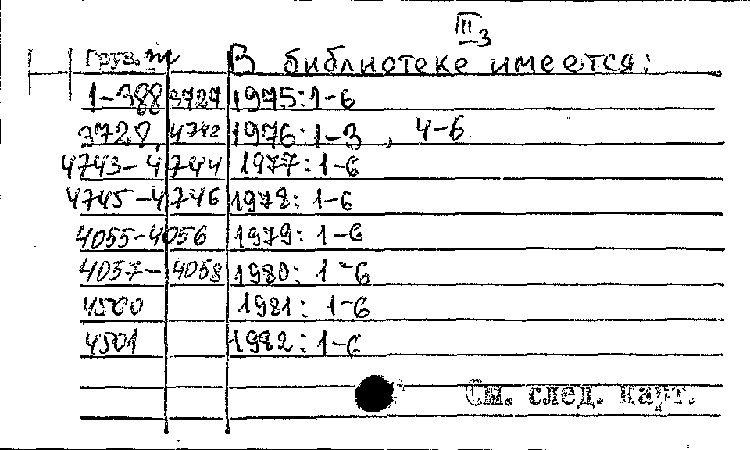 III 3
Груз. В библиотеке имеется:
1-388 3727 1975: 1-6
3728, 4742 1976: 1-3, 4-6
4743-4744 1977: 1-6
4745-4746 1978: 1-6
4055-4056 1979: 1-6
4057-4058 1980: 1-6
4500 1981: 1-6
4501 1982: 1-6
См. след. карт.